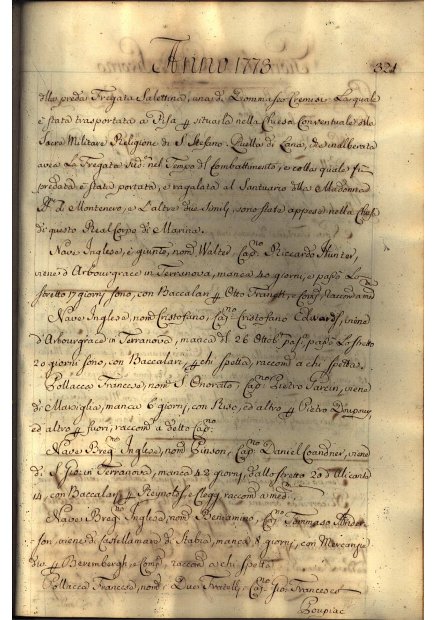 Anno 1773 321
della preda Fregata Salettina, una di Dommasco Cremisi: La quale
è stata trasportata a Pisa p situarla nella Chiesa Conventuale della
Sacra Militare Religione di S. Stefano: Quella di Lana, che inalberata
avea La Fregata sud.a nel Tempo del Combattimento, e colla quale fu
predata è stata portata, e regalata al Santuario della Madonna
di Montenero, e L'altre due Simili, sono state appese nella
di questo Real Corpo di Marina.
Nave Inglese, è giunto, nom Walter Cap.no Riccardo Hunter,
viene d'Arbourgrace in Terranova, manca 40 giorni, e passò Lo
stretto 17 giorni sono, con Baccalari p Otto Frangh, e Comp
Nave Inglese, nom Cristofano, Cap.no Cristofano Edwards, viene
d'Arbourgrace in Terranova, manca di 26 Ottob. pas. passò Lo stretto
20 giorni sono, con Baccalari, p chi spetta, raccom a chi spetta.
Pollacca Francese, nom S Onorato, Cap.no Pietro Garcin, viene
di Marsiglia, manca 6 giorni, con Riso, ed altro p Pietro Dupouy
ed altro p fuori, raccom a detto Cap.no
Nave Breg.no Inglese, nom Pinson, Cap.no Daniel Coandner, viene
di S Gio: in Terranova, manca 42 giorni, dallo stretto 20 Alicante
14, con Baccalari p Reynolds, e Clegg raccom a med
Nave Breg.no Inglese, nom Beniamino, Tommaso
son viene di Castellamare di Stabia, manca 8 giorni, con Mercanzie
p Berembergh, e Comp, raccom a chi spetta
Pollacca Francese, nom i Due Fratelli, Cap.no Gio: Francesco
Poupiac